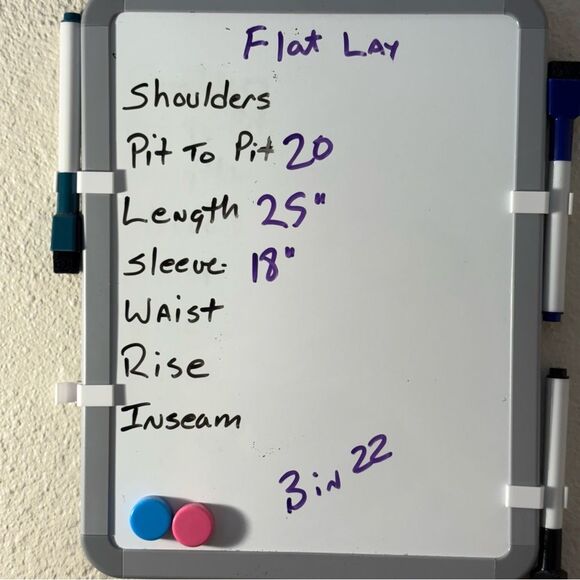 Flat Lay
Shoulders
Pit To Pit 20
Length 25"
Sleeve- 18"
Waist
Rise
Inseam
Bin 22